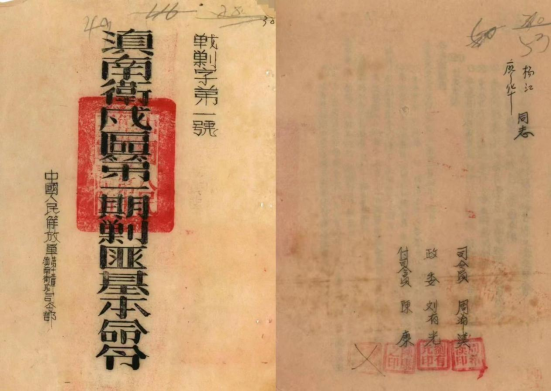 戰剿字第一號
滇南衛戍區第一期剿匪基本命令
中國人民解放軍司令部
楊江
廖華
同志
司令員 周希漢
政委 刘有光
付司令員 陳康